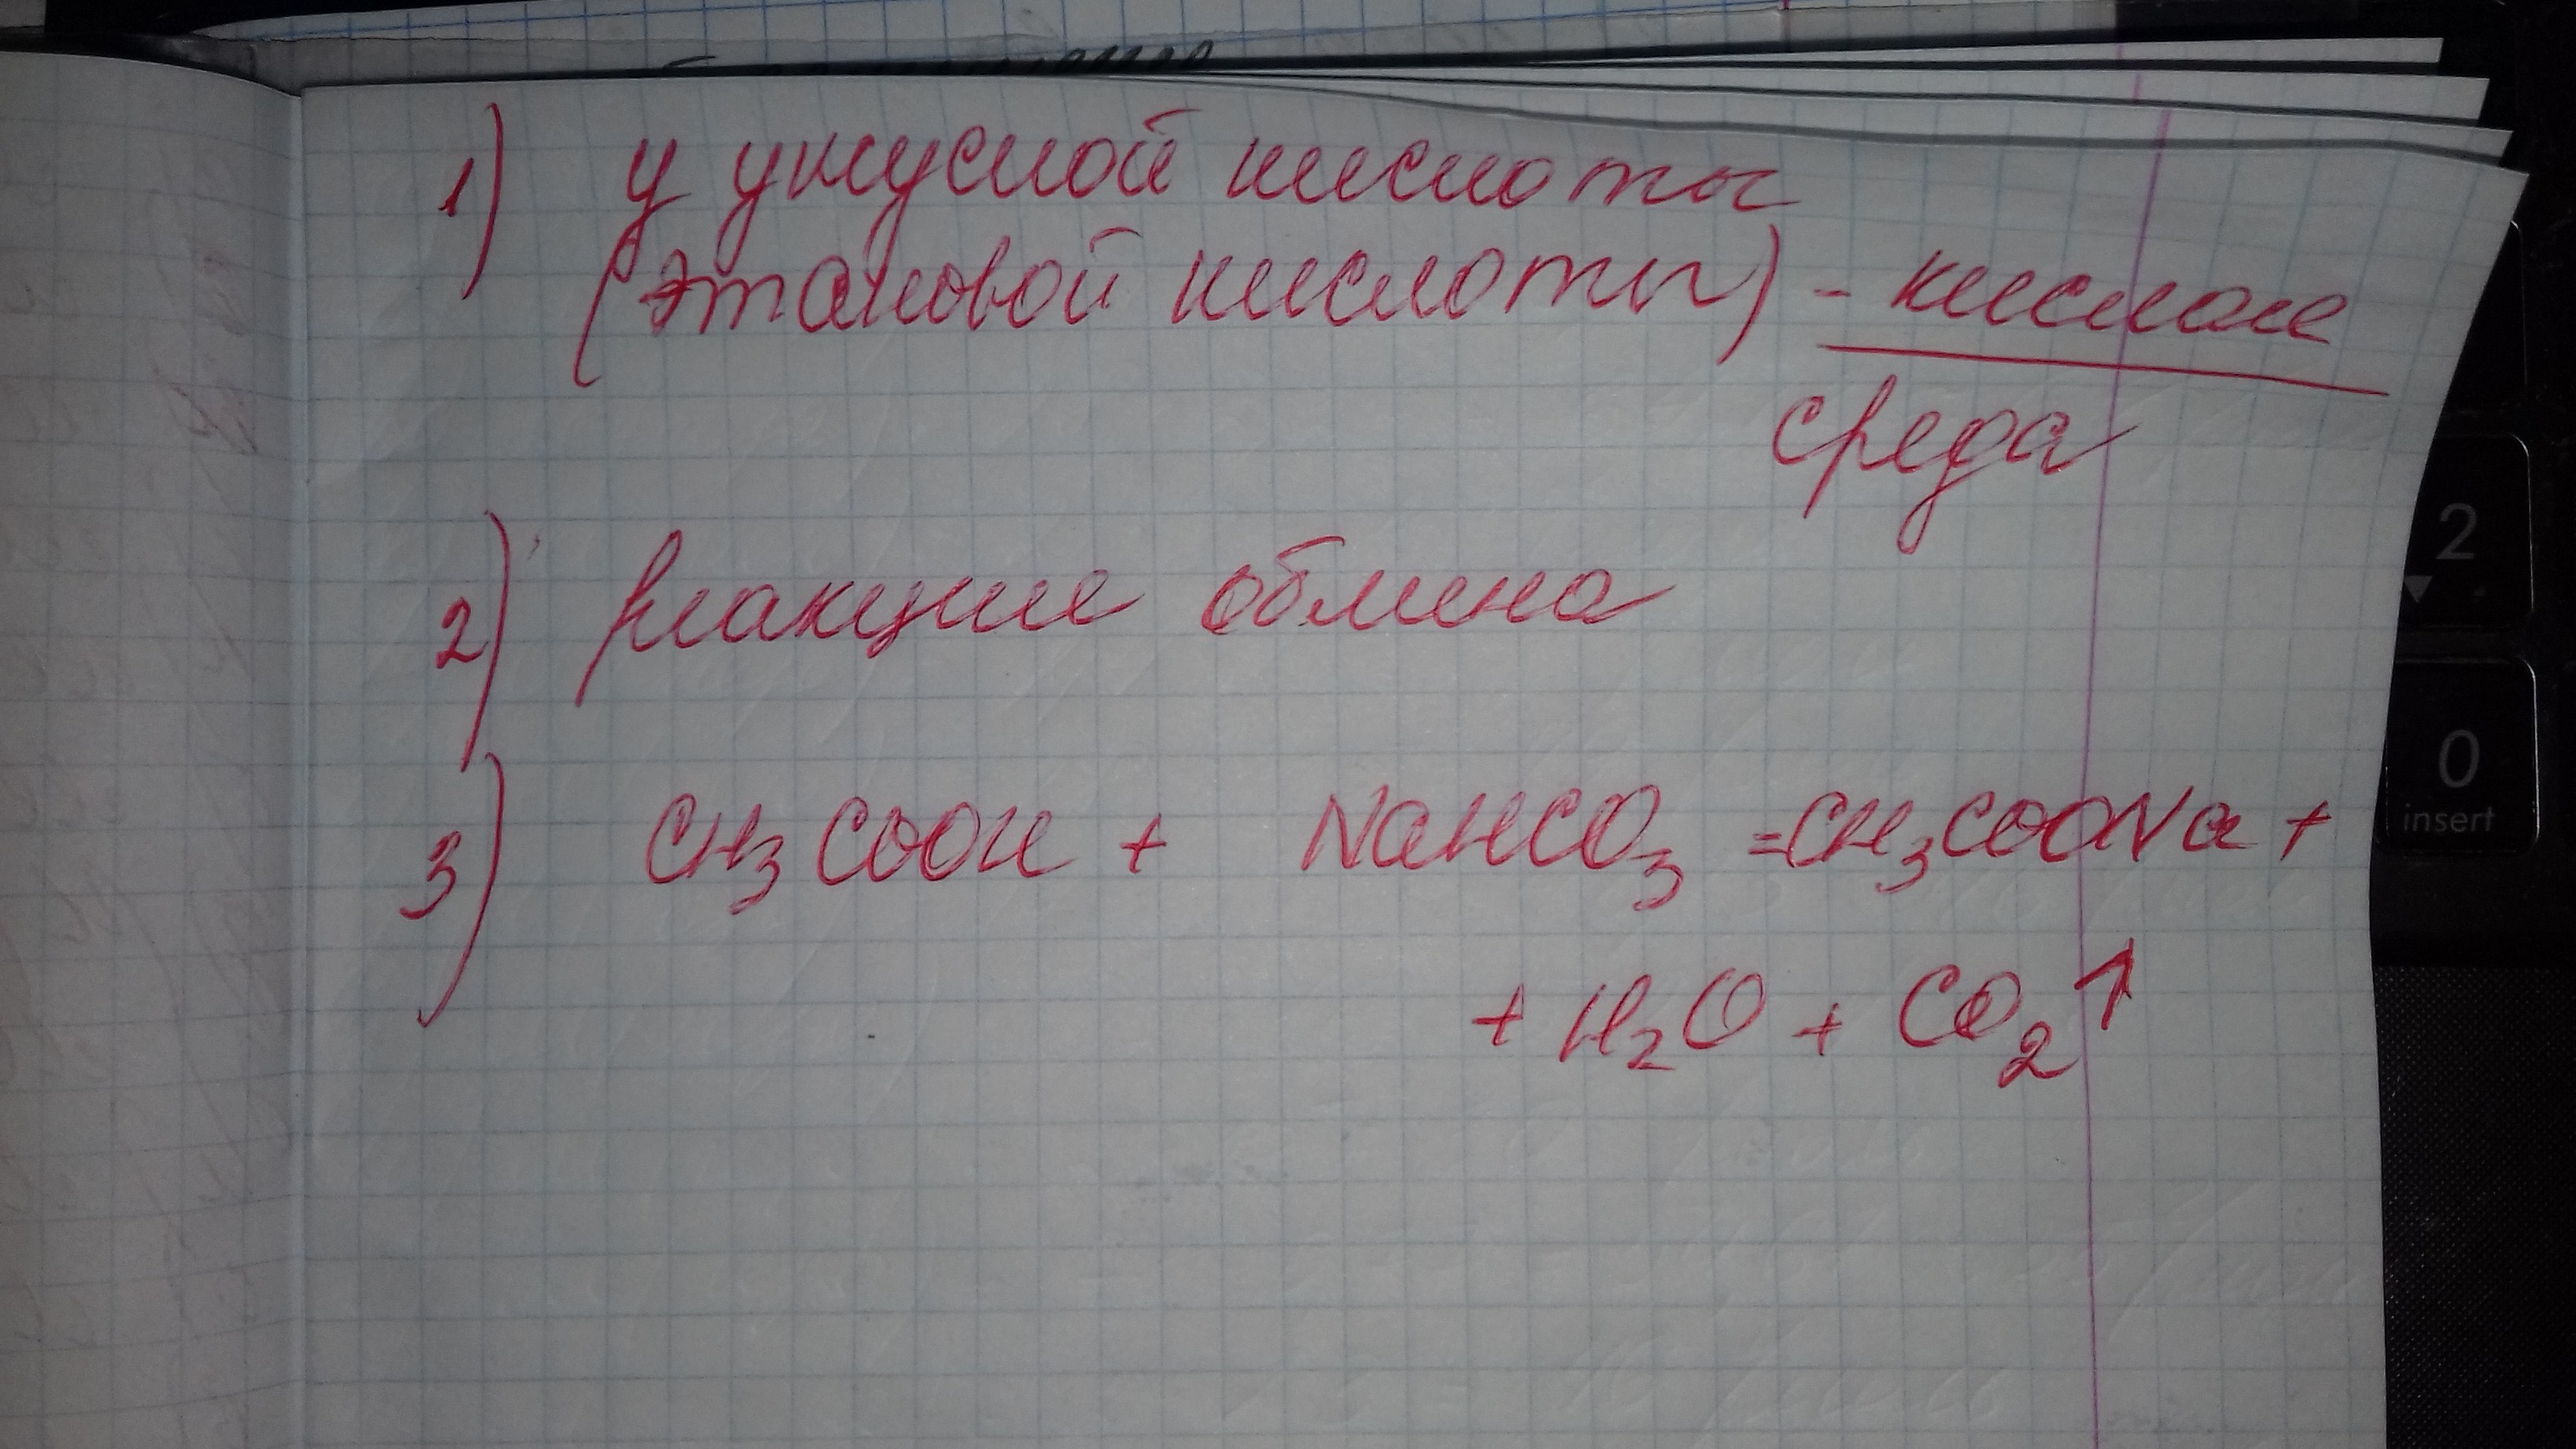 1) у уксусной кислоты
(этановой кислоты) - кислая
среда
2) реакция обмена
3) CH₃COOH + NaHCO₃ = CH₃COONa +
+ H₂O + CO₂↑
2
0
insert